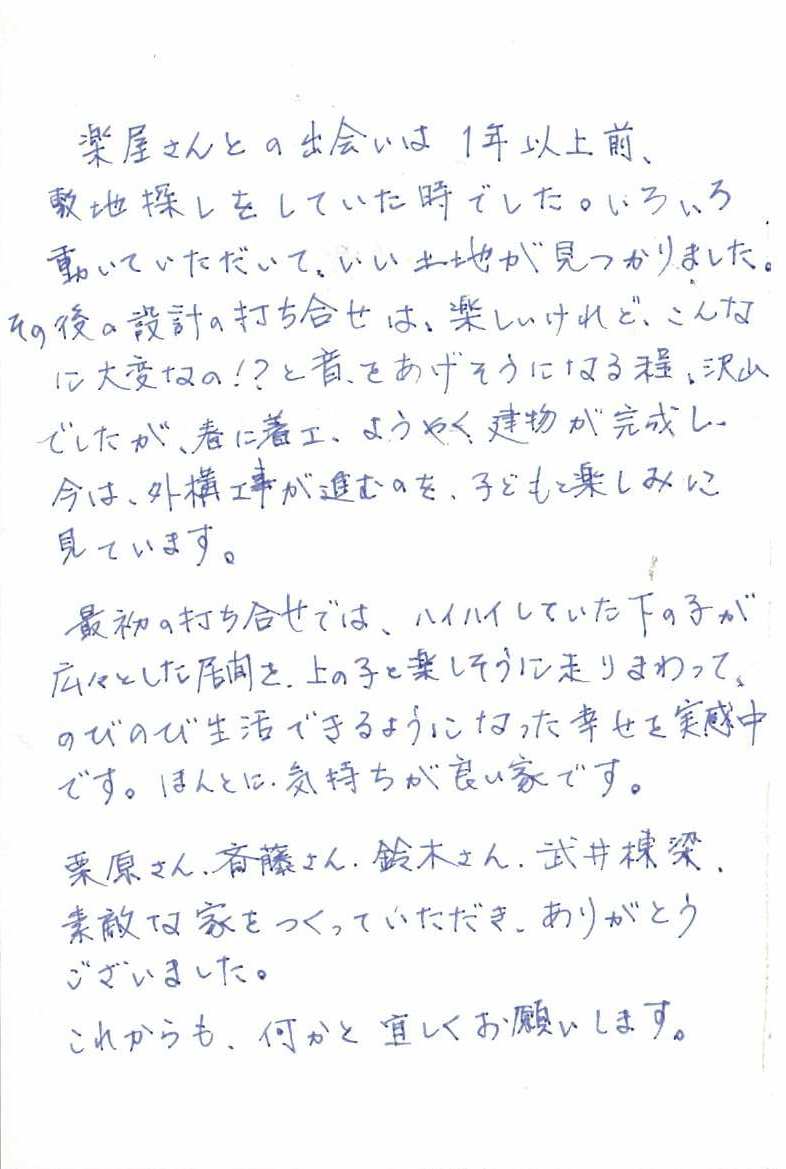 楽屋さんとの出会いは1年以上前、
敷地探しをしていた時でした。いろいろ
動いていただいて、いい土地が見つかりました。
その後の設計の打ち合せは、楽しいけれど、こんな
に大変なの!?と音をあげそうになる程、沢山
でしたが、春に着工、ようやく建物が完成し、
今は、外構工事が進むのを、子どもと楽しみに
見ています。
最初の打ち合せでは、ハイハイしていた下の子が
広々とした居間を、上の子と楽しそうに走りまわって、
のびのび生活できるようになった幸せを実感中
です。ほんとに、気持ちが良い家です。
栗原さん、斉藤さん、鈴木さん、武井棟梁、
素敵な家をつくっていただき、ありがとう
ございました。
これからも、何かと宜しくお願いします。